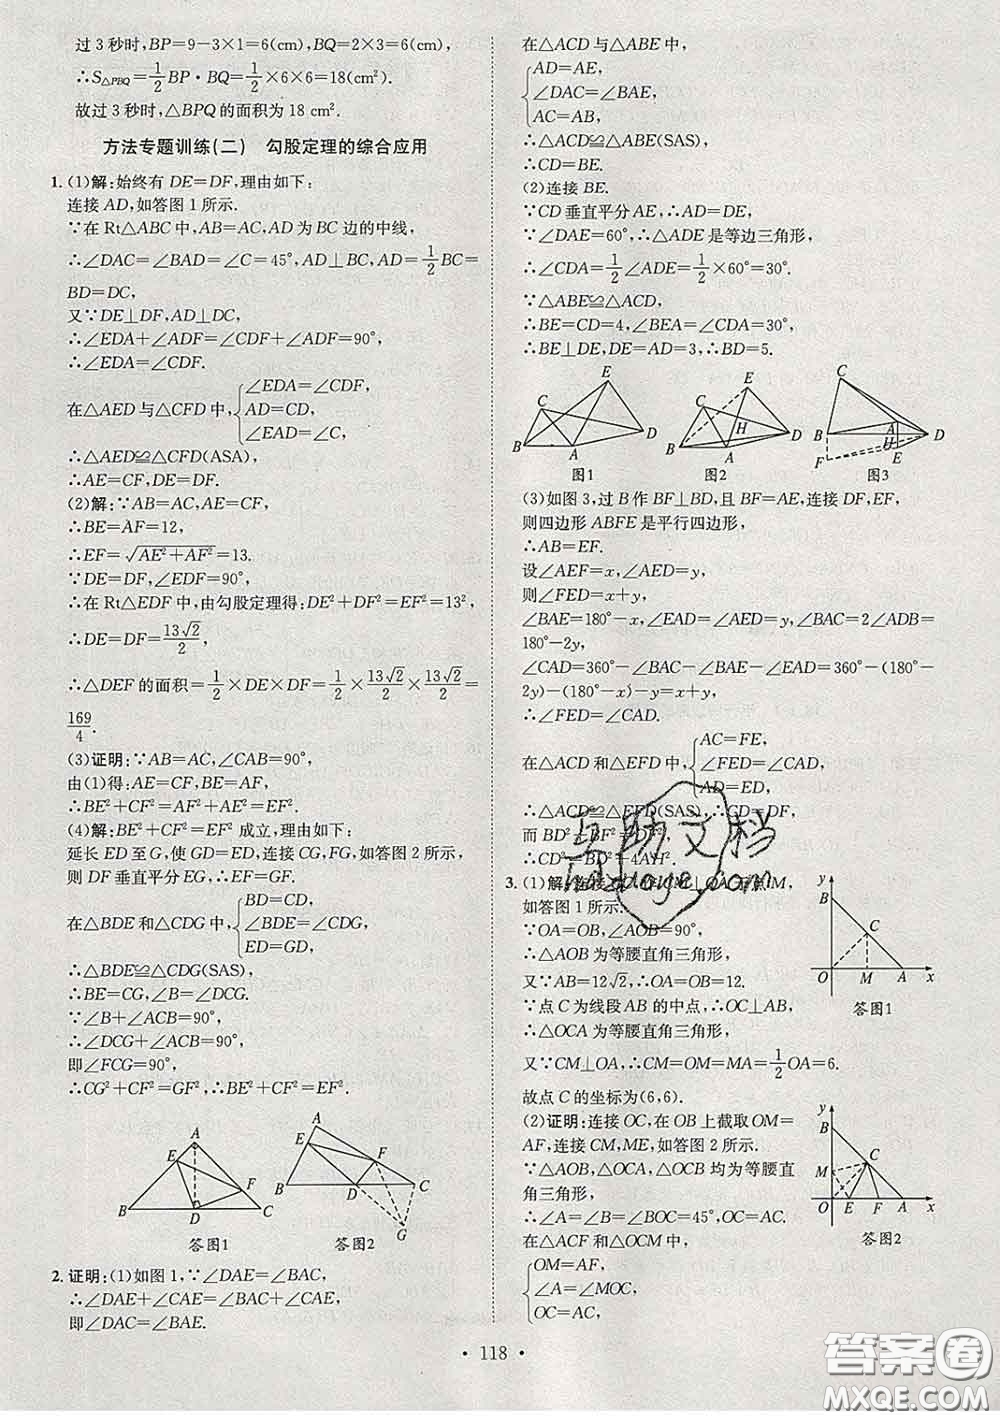 过3秒时,BP=9-3×1=6(cm),BQ=2×3=6(cm),
∴S△PBQ=1/2BP·BQ=1/2×6×6=18(cm²).
故过3秒时,△BPQ的面积为18 cm².
方法专题训练(二) 勾股定理的综合应用
1. (1)解:始终有DE=DF,理由如下:
连接AD,如答图1所示.
∵在Rt△ABC中,AB=AC,AD为BC边的中线,
∴∠DAC=∠BAD=∠C=45°,AD⊥BC,AD=1/2BC=
BD=DC,
又∵DE⊥DF,AD⊥DC,
∴∠EDA+∠ADF=∠CDF+∠ADF=90°,
∴∠EDA=∠CDF.
在△AED与△CFD中,{∠EDA=∠CDF,
AD=CD,
∠EAD=∠C,
∴△AED≌△CFD(ASA),
∴AE=CF,DE=DF.
(2)解:∵AB=AC,AE=CF,
∴BE=AF=12,
∴EF=√(AE²+AF²)=13.
∵DE=DF,∠EDF=90°,
∴在Rt△EDF中,由勾股定理得:DE²+DF²=EF²=13²,
∴DE=DF=13√2/2,
∴△DEF的面积=1/2×DE×DF=1/2×13√2/2×13√2/2=
169/4.
(3)证明:∵AB=AC,∠CAB=90°,
由(1)得:AE=CF,BE=AF,
∴BE²+CF²=AF²+AE²=EF².
(4)解:BE²+CF²=EF²成立,理由如下:
延长ED至G,使GD=ED,连接CG,FG,如答图2所示,
则DF垂直平分EG,∴EF=GF.
在△BDE和△CDG中,{BD=CD,
∠BDE=∠CDG,
ED=GD,
∴△BDE≌△CDG(SAS),
∴BE=CG,∠B=∠DCG.
∵∠B+∠ACB=90°,
∴∠DCG+∠ACB=90°,
即∠FCG=90°,
∴CG²+CF²=GF²,∴BE²+CF²=EF².
A E F B D C
答图1
A E F B D C G
答图2
2. 证明:(1)如图1,∵∠DAE=∠BAC,
∴∠DAE+∠CAE=∠BAC+∠CAE,
即∠DAC=∠BAE.
在△ACD与△ABE中,
{AD=AE,
∠DAC=∠BAE,
AC=AB,
∴△ACD≌△ABE(SAS),
∴CD=BE.
(2)连接BE.
∵CD垂直平分AE,∴AD=DE,
∵∠DAE=60°,∴△ADE是等边三角形,
∴∠CDA=1/2∠ADE=1/2×60°=30°.
∵△ABE≌△ACD,
∴BE=CD=4,∠BEA=∠CDA=30°,
∴BE⊥DE,DE=AD=3,∴BD=5.
E C D B A
图1
E C H D B A
图2
C A B H D F E
图3
(3)如图3,过B作BF⊥BD,且BF=AE,连接DF,EF,
则四边形ABFE是平行四边形,
∴AB=EF.
设∠AEF=x,∠AED=y,
则∠FED=x+y,
∠BAE=180°-x,∠EAD=∠AED=y,∠BAC=2∠ADB=
180°-2y,
∠CAD=360°-∠BAC-∠BAE-∠EAD=360°-(180°-
2y)-(180°-x)-y=x+y,
∴∠FED=∠CAD.
在△ACD和△EFD中,{AC=FE,
∠FED=∠CAD,
AD=ED,
∴△ACD≌△EFD(SAS),∴CD=DF,
而BD²+BF²=DF²,
∴CD²=BD²+4AH².
3. (1)解:连接OC,作CM⊥OA于点M,
如答图1所示.
∵OA=OB,∠AOB=90°,
∴△AOB为等腰直角三角形,
又∵AB=12√2,∴OA=OB=12.
∵点C为线段AB的中点,∴OC⊥AB,
∴△OCA为等腰直角三角形,
又∵CM⊥OA,∴CM=OM=MA=1/2OA=6.
故点C的坐标为(6,6).
y B C O M A x
答图1
(2)证明:连接OC,在OB上截取OM=
AF,连接CM,ME,如答图2所示.
∵△AOB,△OCA,△OCB均为等腰直
角三角形,
∴∠A=∠B=∠BOC=45°,OC=AC.
在△ACF和△OCM中,
{OM=AF,
∠A=∠MOC,
OC=AC,
y B M C O E F A x
答图2
互助文档
hdzuoye.com
·118·
答案圈
MXQE.COM